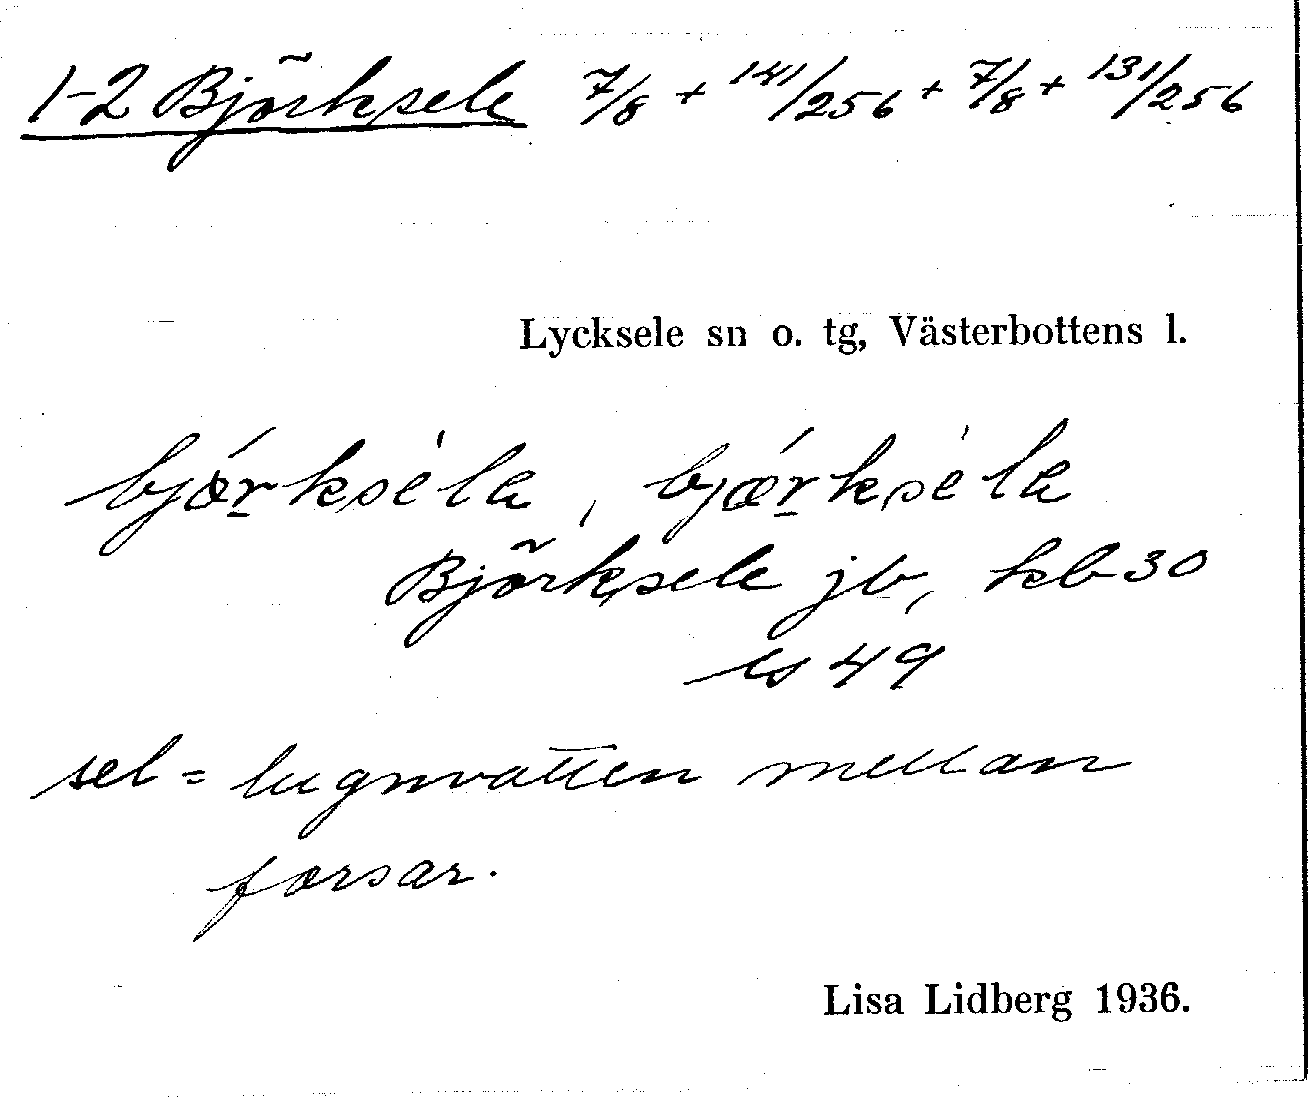 1-2 Björksele 7/8 + 141/256 + 7/8 + 131/256
Lycksele sn o. tg, Västerbottens l.
bjǿrkséla, bjǽrkséla
Björksele jb, kb 30
es 49
sel = lugnvatten mellan
forsar.
Lisa Lidberg 1936.